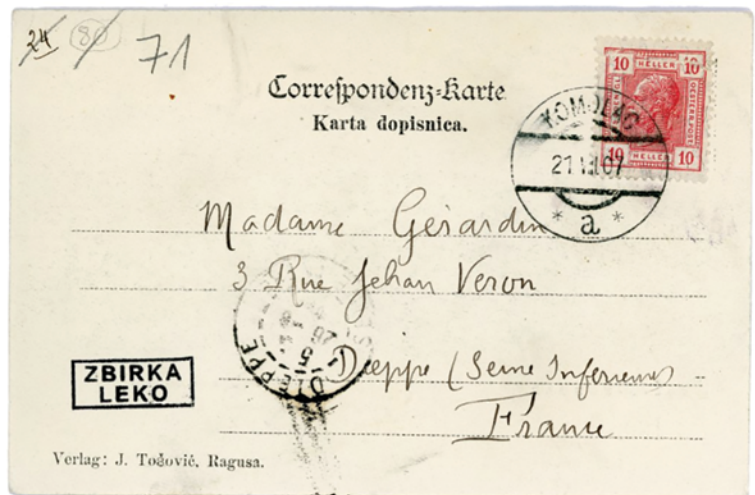 24 80 71
Correſpondenz-Karte
Karta dopisnica.
10 HELLER 10
10 HELLER 10
KOMOLAC
21 07
* a *
Madame Gérardin
3 Rue Jehan Veron
Dieppe (Seine Inferieure)
France
DIEPPE
ZBIRKA
LEKO
Verlag: J. Tošović, Ragusa.